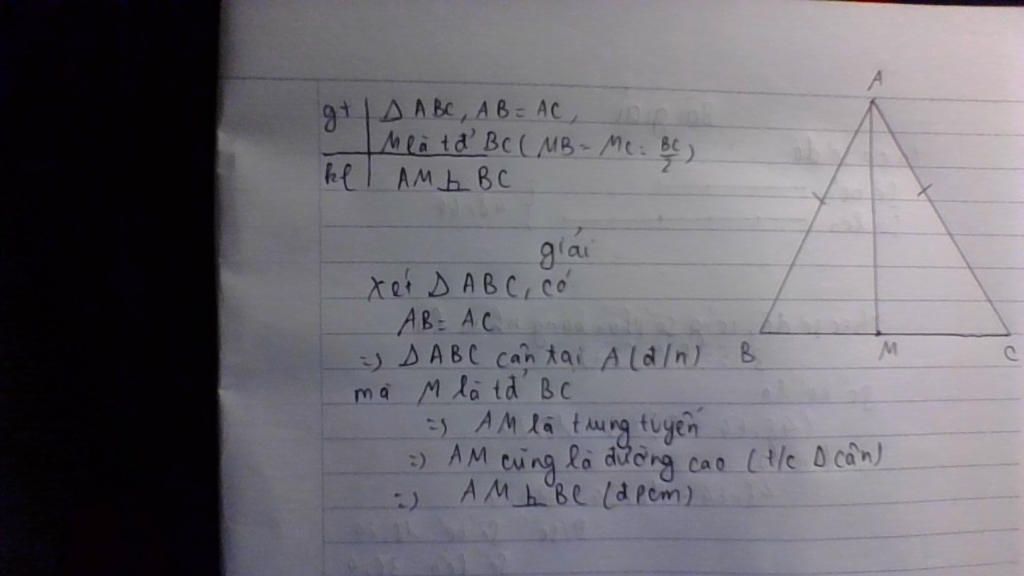 gt | Δ ABC, AB = AC,
M là tđ' BC ( MB = MC = BC/2 )
kl | AM ⊥ BC
giải
xét Δ ABC, có
AB = AC
=> Δ ABC cân tại A (đ/n)
mà M là tđ' BC
=> AM là trung tuyến
=> AM cũng là đường cao ( t/c Δ cân)
=> AM ⊥ BC (đpcm)
A
B
M
C